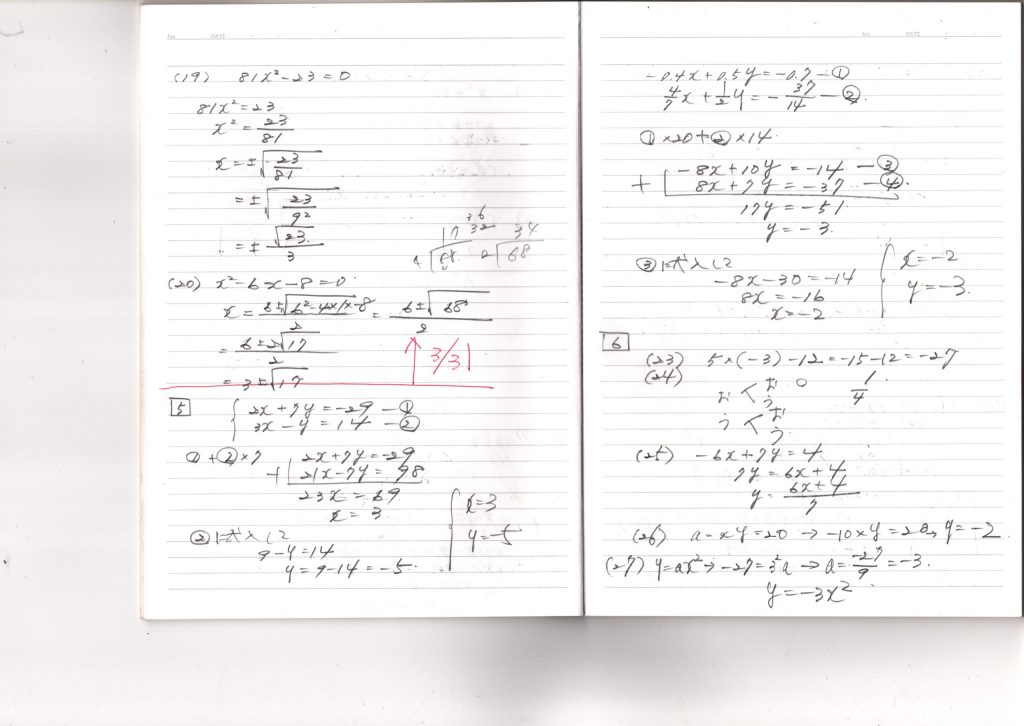 No. DATE
(19) 81x²-23=0
81x²=23
x²=23/81
x=±√(23/81)
=±√(23/9²)
=±√23/3
(20) x²-6x-8=0
x=(6±√(6²-4×1×-8))/2=(6±√68)/2
=(6±2√17)/2
=3±√17
3/31
5 { 2x+7y=-29 -①
3x-y=14 -②
①+②×7 2x+7y=-29
+) 21x-7y=98
23x=69
x=3
②に代入して
9-y=14
y=9-14=-5
{ x=3
y=-5
No. DATE
-0.4x+0.5y=-0.7-①
4/7x+1/2y=-37/14-②
①×20+②×14
-8x+10y=-14 -③
+) 8x+7y=-37 -④
17y=-51
y=-3
③に代入して
-8x-30=-14
8x=-16
x=-2
{ x=-2
y=-3
6
(23) 5×(-3)-12=-15-12=-27
(24)
1/4
(25) -6x+7y=4
7y=6x+4
y=(6x+4)/7
(26) a=xy=20→-10×y=20, y=-2
(27) y=ax²→-27=3²a→a=-27/9=-3
y=-3x²